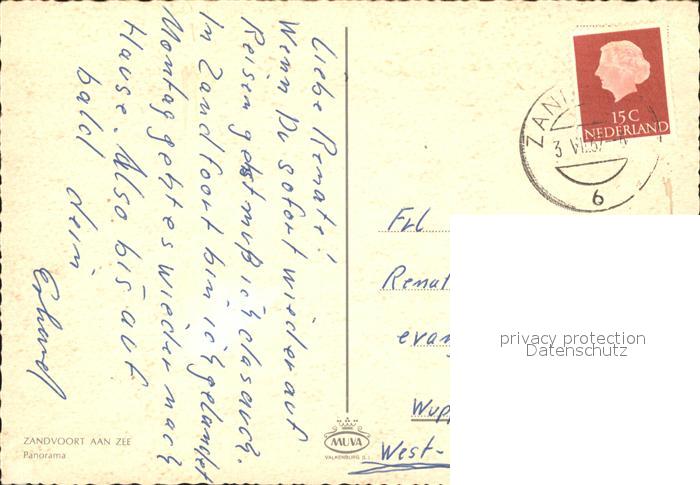 Liebe Renate!
Wenn Du sofort wieder auf
Reisen gehst muß ich das auch.
In Zandfoort bin ich gelandet
Montag geht es wieder nach
Hause. Also bis auf
bald dein
Erhard
ZANDVOORT AAN ZEE
Panorama
MUVA
VALKENBURG (L.)
15 C
NEDERLAND
ZAN
3 VII
6
Frl
Renat
evan
Wupp
West-
privacy protection
Datenschutz